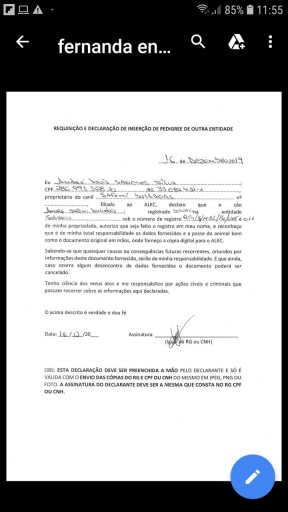 85% 11:55
fernanda en...
REQUISIÇÃO E DECLARAÇÃO DE INSERÇÃO DE PEDIGREE DE OUTRA ENTIDADE
16 de
Eu
CPF
proprietário do canil
, filiado ao ALKC, declaro que o cão
registrado entidade
sob o número de registro
de minha propriedade, autorizo que seja feito o registro em meu nome, e reconheço
que é de minha total responsabilidade os dados fornecidos e a posse do animal bem
como o documento original em mãos, onde forneço a cópia digital para o ALKC.
Sabendo-se que quaisquer causas ou consequências futuras recorrentes, oriundos por
informações deste documento fornecido, serão de minha responsabilidade. E que ainda,
caso ocorra algum desencontro de dados fornecidos o documento poderá ser
cancelado.
Tenho ciência dos meus atos e me responsabilizo por ações civeis e criminais que
possam recorrer sobre as informações aqui declaradas.
O acima descrito é verdade e dou fé
Data: Assinatura:
RG ou CNH)
OBS: ESTA DECLARAÇÃO DEVE SER PREENCHIDA A MÃO PELO DECLARANTE E SÓ É
VÁLIDA COM O ENVIO DAS CÓPIAS DO RG E CPF OU CNH DO MESMO EM JPEG, PNG OU
FOTO. A ASSINATURA DO DECLARANTE DEVE SER A MESMA QUE CONSTA NO RG CPF
OU CNH.